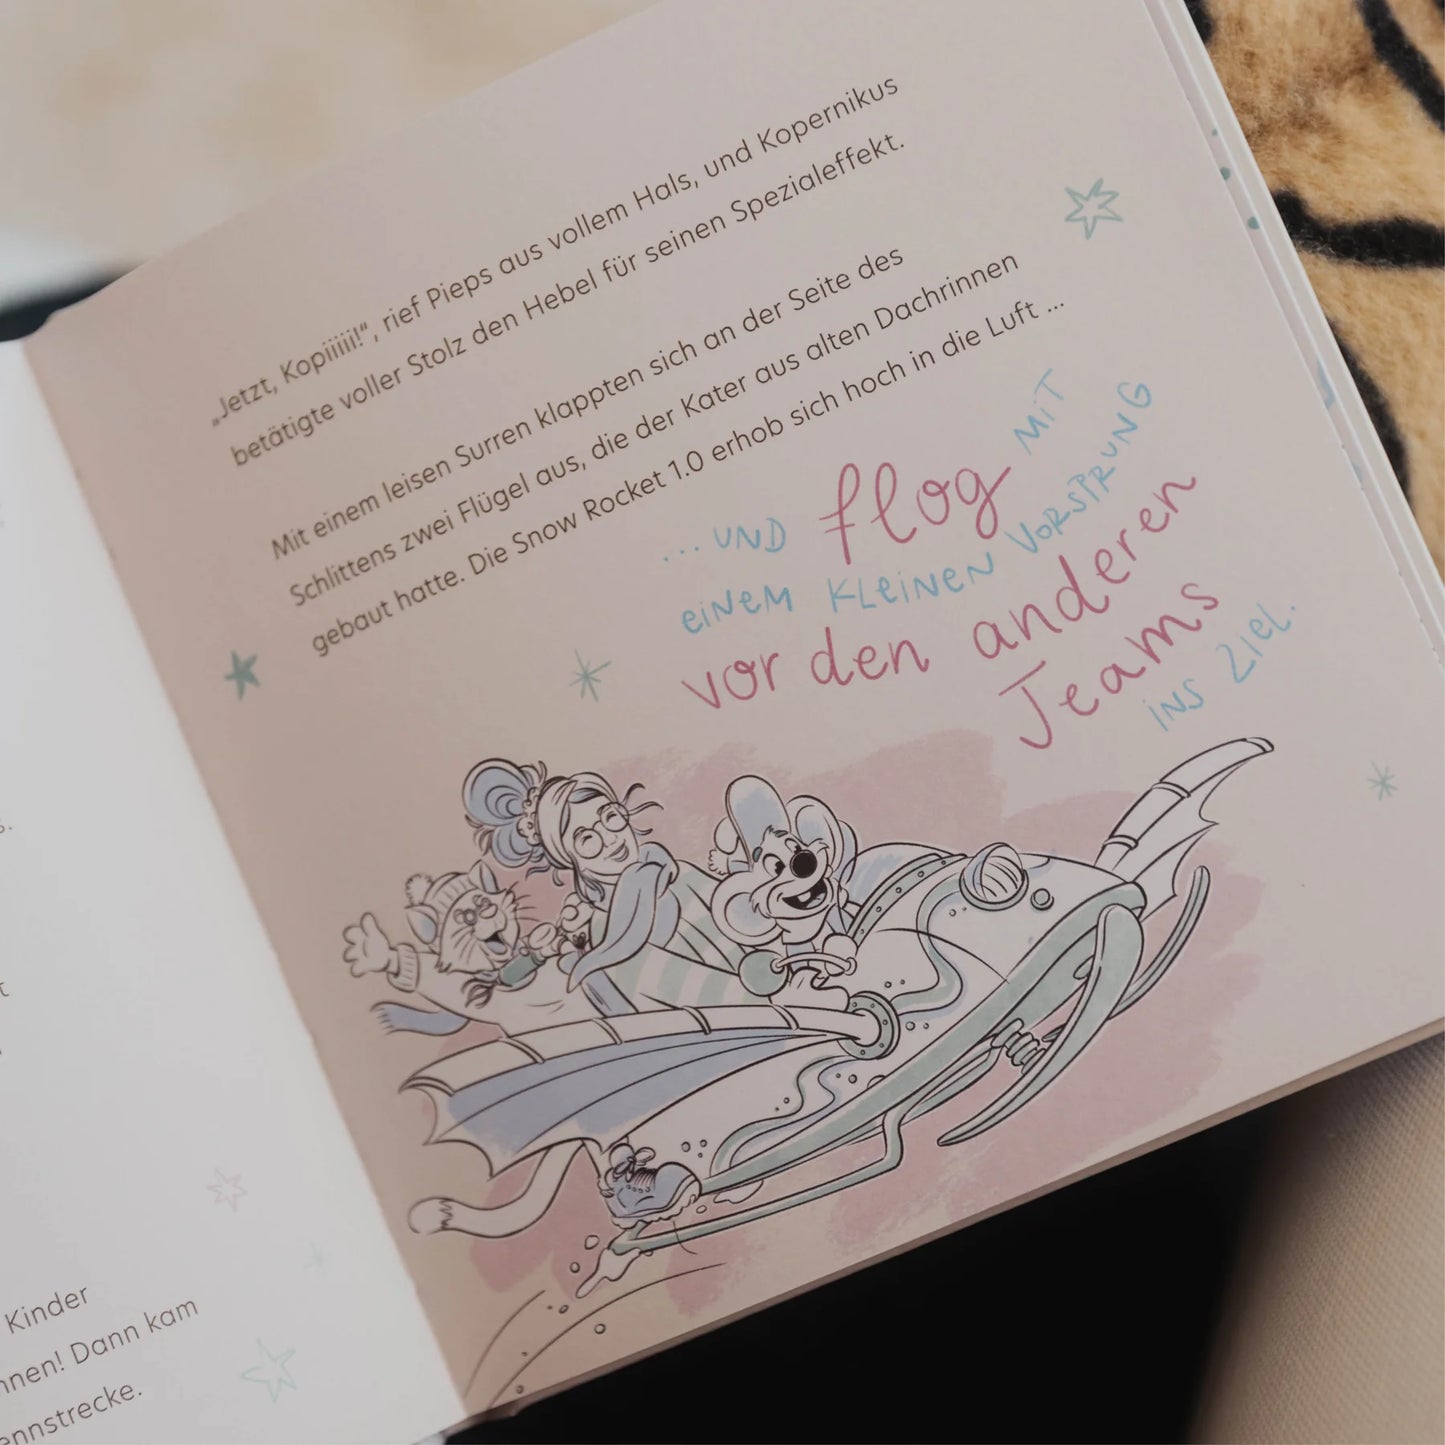 „Jetzt, Kopiiiii!“, rief Pieps aus vollem Hals, und Kopernikus
betätigte voller Stolz den Hebel für seinen Spezialeffekt.
Mit einem leisen Surren klappten sich an der Seite des
Schlittens zwei Flügel aus, die der Kater aus alten Dachrinnen
gebaut hatte. Die Snow Rocket 1.0 erhob sich hoch in die Luft ...
... UND flog MIT
EINEM KLEINEN VORSPRUNG
vor den anderen
Teams
INS ZIEL.
Kinder
Dann kam